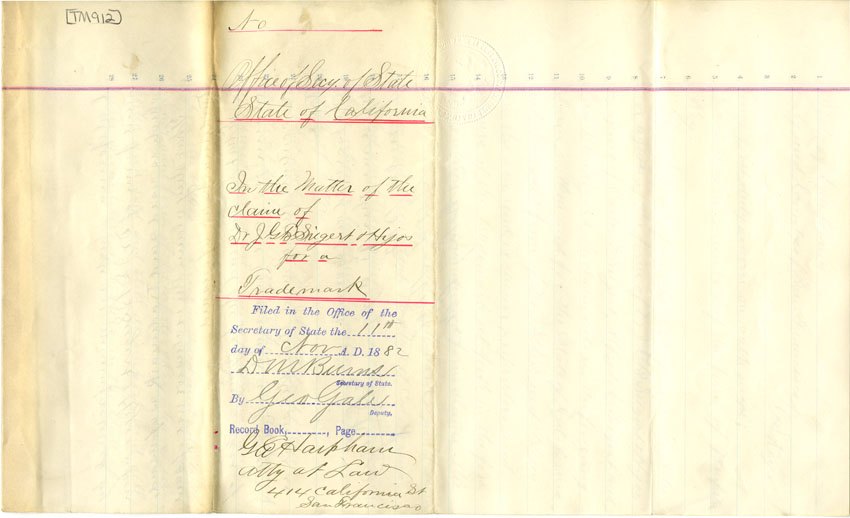 [TM912]
No
Office of Secy. of State
State of California
In the Matter of the
claim of
Dr J. G. B. Siegert & Hijos
for a
Trademark
Filed in the Office of the
Secretary of State the 11th
day of Nov A. D. 1882
D M Burns
Secretary of State.
By Geo Gale
Deputy.
Record Book, , Page
G E Harpham
Atty at Law
414 California St
San Francisco